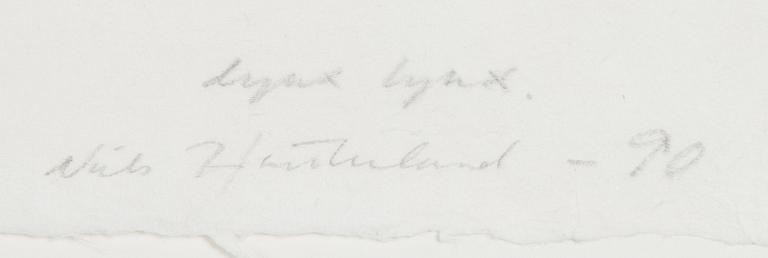 Lynx lynx.
Nils Hasterlund - 90